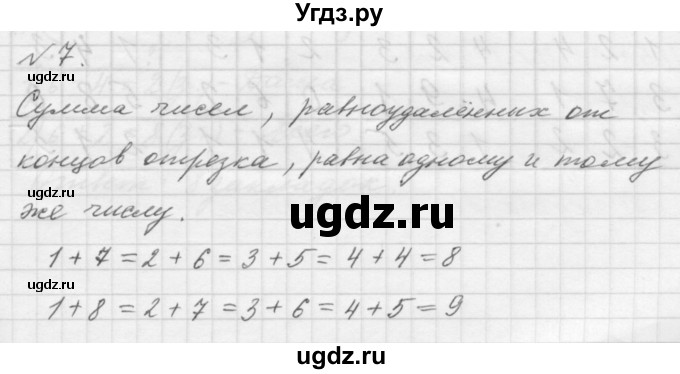 Угдз.ру
№ 7.
ugdz.ru
Сумма чисел, равноудалённых от
ugdz.ru
концов отрезка, равна одному и тому
ugdz.ru
же числу.
ugdz.ru
1 + 7 = 2 + 6 = 3 + 5 = 4 + 4 = 8
1 + 8 = 2 + 7 = 3 + 6 = 4 + 5 = 9
ugdz.ru
ugdz.ru